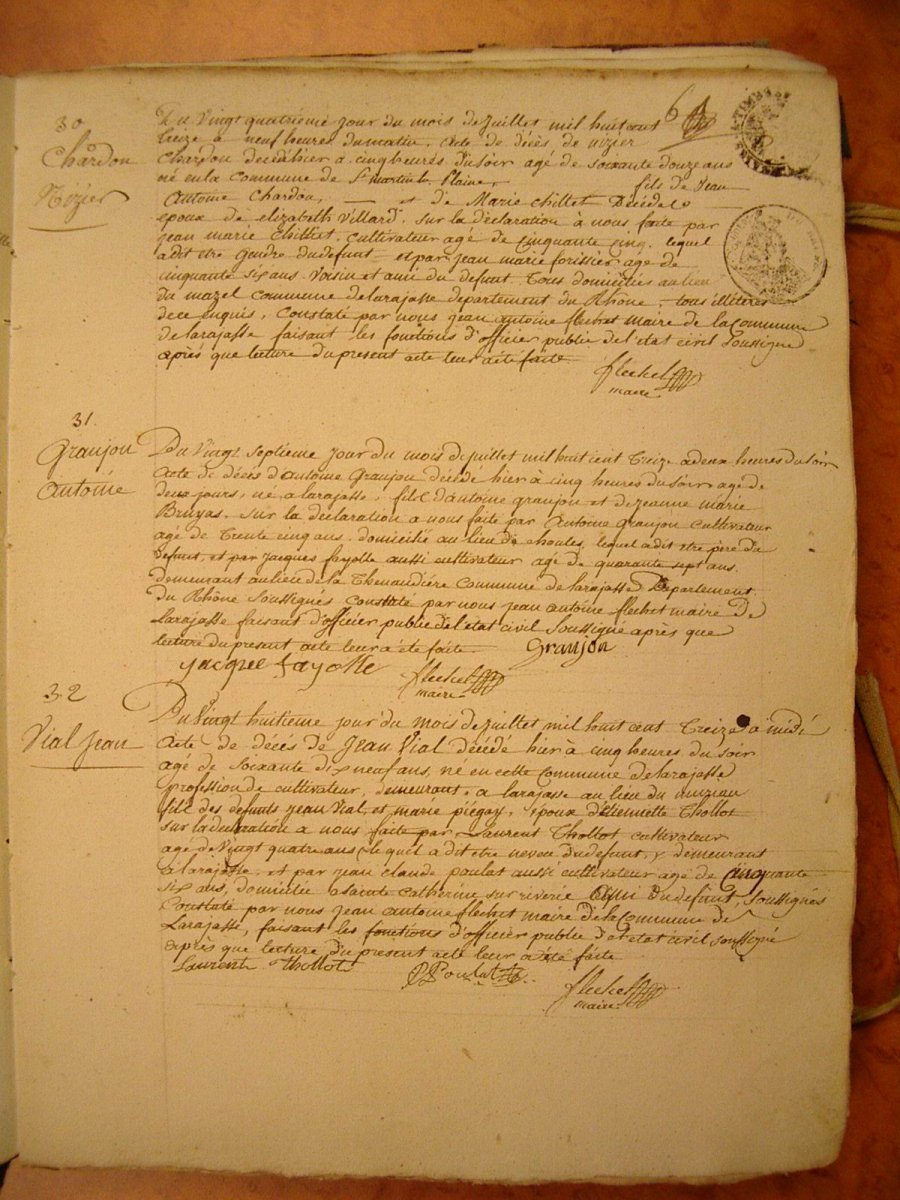 6
30
Chardon
Nizier
Du Vingt quatrième jour du mois de juillet mil huit cent
treize à neuf heures du matin, acte de décès de nizier
Chardon decédé hier a cinq heures du soir agé de soixante douze ans
né en la Commune de St martin la Plaine, fils de jean
Antoine Chardon, et de Marie Chillet Décédés
époux de elizabeth Villard. sur la déclaration à nous faite par
jean marie Chillet. cultivateur agé de cinquante cinq. lequel
a dit etre gendre du defunt et par jean marie forissier age de
cinquante six ans. Voisin et ami du defunt. Tous domiciliés au lieu
du mazel commune de larajasse departement du Rhône, tous illiteres
de ce enquis, Constaté par nous jean antoine flechet maire de la commune
de larajasse faisant les fonctions d'officier public de l'etat civil Soussigné
après que lecture du present acte leur a été faite
flechet
maire
31
Granjon
Antoine
Du Vingt Septieme jour du mois de juillet mil huit cent Treize a deux heures du soir
Acte de décès d'antoine Granjon décédé hier à cinq heures du soir agé de
deux jours, né a larajasse, fils d'antoine granjon et de jeanne marie
Bruyas. Sur la déclaration a nous faite par Antoine granjon cultivateur
agé de Trente cinq ans. domicilié au lieu de lequel a dit etre père du
defunt, et par jacques fayolle aussi cultivateur agé de quarante sept ans.
demeurant au lieu de la Thenaudière Commune de larajasse Departement
du Rhône Soussignés Constaté par nous jean antoine flechet maire de
Larajasse faisant d'officier public de l'etat civil Soussigné après que
lecture du present acte leur a été faite. Granjon
jacque fayolle
flechet
maire
32
Vial Jean
Du Vingt huitieme jour du mois de juillet mil huit cent Treize a midi
Acte de décés de Jean Vial décédé hier à cinq heures du soir
agé de Soixante dix neuf ans, né en cette Commune de larajasse
profession de cultivateur, demeurant a larajasse au lieu du
fils des defunts jean Vial, et marie piégay, époux d'etiennette Thollot
sur la déclaration a nous faite par Laurent Thollot cultivateur
agé de Vingt quatre ans lequel a dit etre neveu du defunt, y demeurant
a larajasse, et par jean claude poulat aussi cultivateur agé de Cinquante
six ans, domicilié a Sainte Catherine sur riverie du defunt, Soussignés
Constaté par nous jean antoine flechet maire de la Commune de
Larajasse, faisant les fonctions d'officier public d'etat civil soussigné
après que lecture du present acte leur a été faite
Laurent Thollot Poulat
flechet
maire